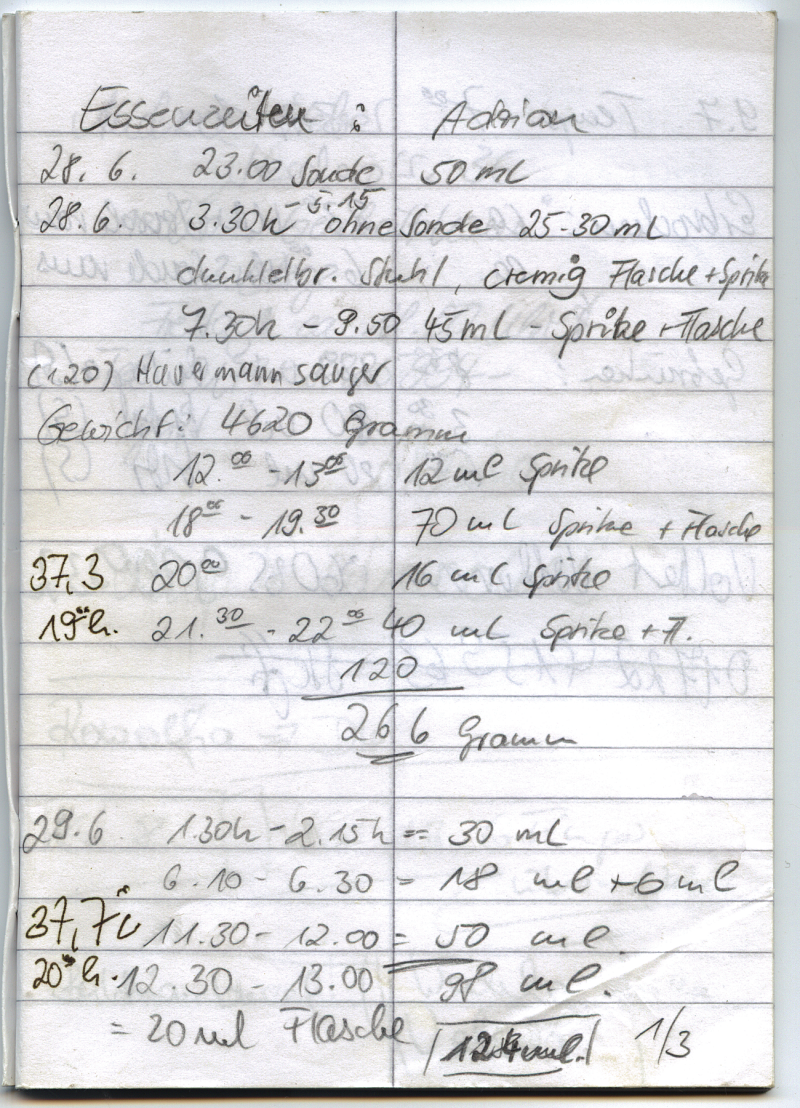 Essenzeiten : Adrian
28. 6. 23.00 Sonde 50 ml
28.6. 3.30h - 5.15 ohne Sonde 25-30 ml
dunkelbr. Stuhl, cremig Flasche + Spritze
7.30h - 9.50 45 ml - Spritze + Flasche
(120) Havermannsauger
Gewicht: 4620 Gramm
12.00 - 13.00 12 ml Spritze
18.00 - 19.30 70 ml Spritze + Flasche
37,3 20.00 16 ml Spritze
19.00 h. 21.30 - 22.00 40 ml Spritze + Fl.
120
266 Gramm
29.6 1.30h - 2.15h = 30 ml
6.10 - 6.30 = 18 ml + 6 ml
37,7 11.30 - 12.00 = 50 ml.
20 h. 12.30 - 13.00 98 ml.
= 20 ml Flasche 1/3